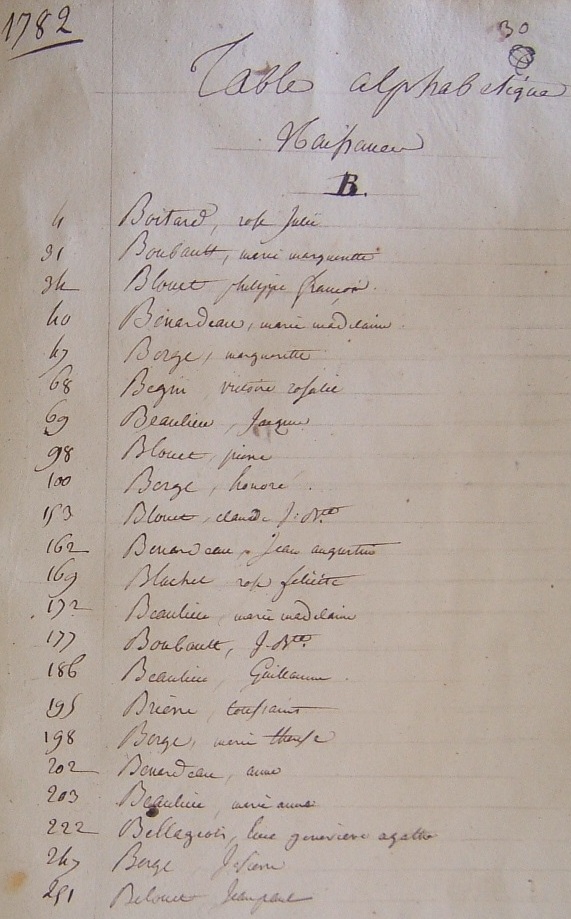 1782
30
Table alphabetique
Naissances
B.
4 Boitard, rose Julie
31 Boubault, marie marguerite
34 Blouet philippe françois.
40 Bénardeau, marie madelaine.
47 Berge, marguerite
68 Begin, victoire rosalie
69 Beaulieu, Jacques
98 Blouet, pierre
100 Berge, honoré.
153 Blouet, claude J. Bte
162 Benardeau, Jean augustin
169 Blachet rose félicité
172 Beaulieu, marie madelaine
177 Boubault, J. Bte
186 Beaulieu, Guillaume.
195 Brière, toussaint
198 Berge, marie therese
202 Benardeau, anne
203 Beaulieu, marie anne
222 Bellageois, genevieve agathe
247 Berge J. pierre
251 Belouet Jean paul